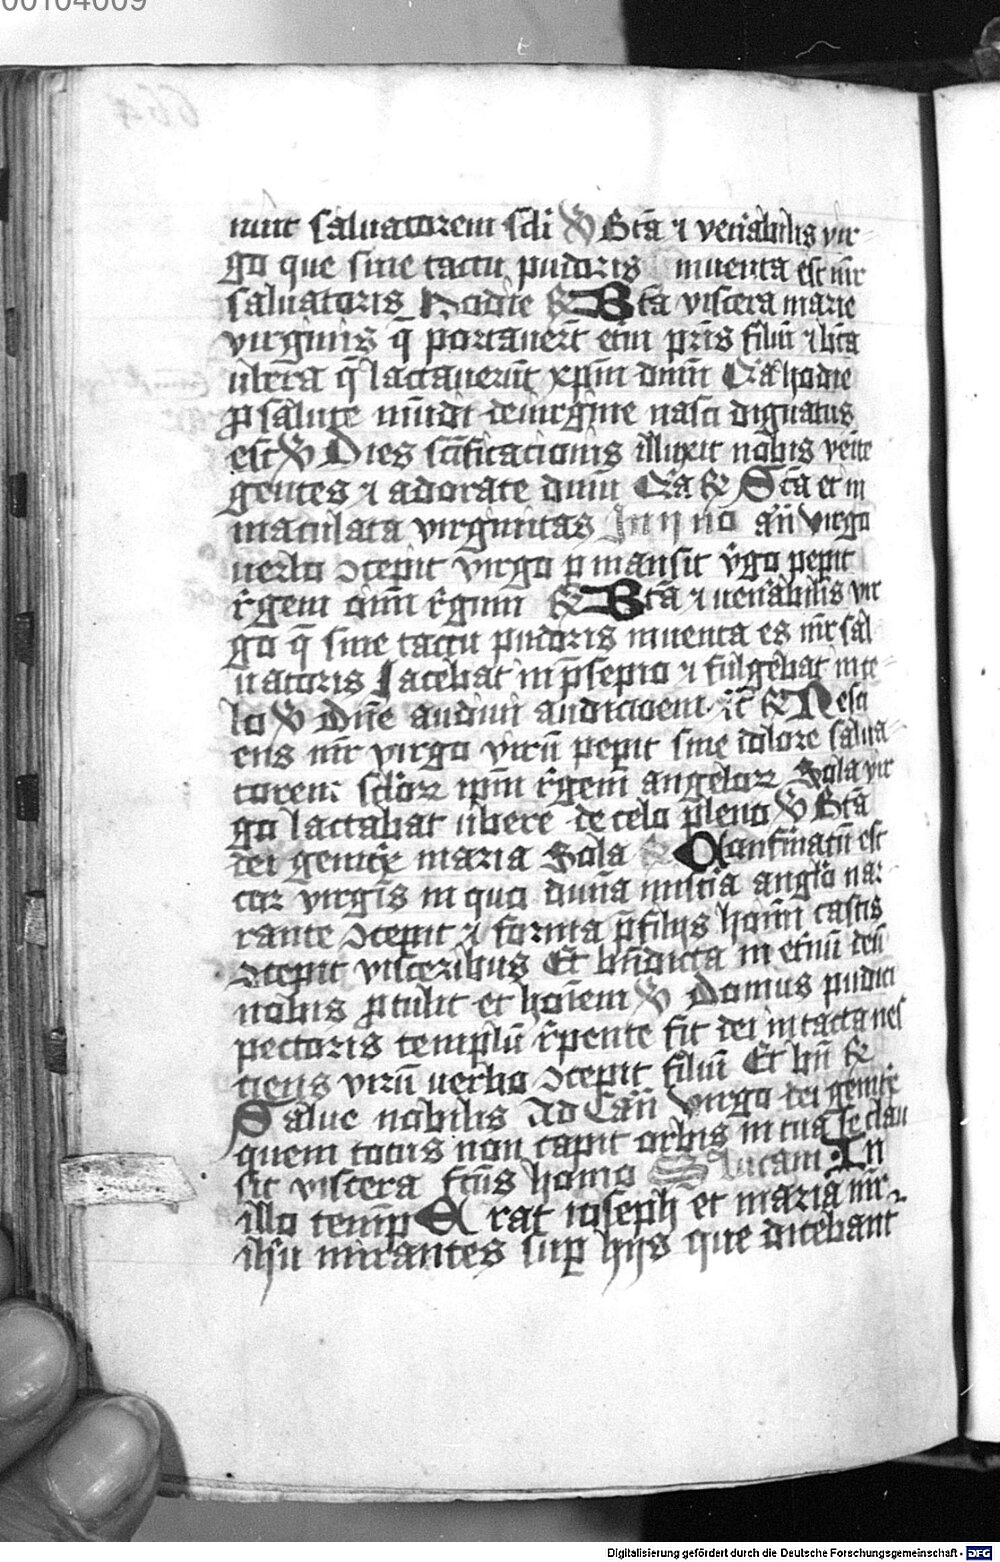 00104009
664
nuit saluatorem scli ℣ Bta̅ ⁊ ven̓abilis vir
go que sine tactu pudoris inuenta est mr̅
saluatoris Hodie ℟ Bta̅ viscera marie
virginis q̅ portauer̅t et̅ni pr̅is filiu̅ ⁊ bt̅a
vbera q̅ lactauerūt xp̅m dn̅m Q̓a hodie
ꝓ salute mūdi de virgine nasci dignatus
est ℣ Dies sc̅ificacionis illuxit nobis ven̅te
gentes ⁊ adorate dn̅m Q̓a ℟ Sc̅a et in
maculata virginitas an̅ virgo
uerbo ↄcepit virgo ꝑmansit v̓go pep̅it
r̓gem om̅m r̓gum ℟ Bta̅ ⁊ uen̓abilis vir
go q̅ sine tactu pudoris inuenta es mr̅ sal
uatoris Iacebat in p̅sepio ⁊ fulgebat in ce
lo ℣ Dn̅e audiui auditioem ℟ Nesci
ens mr̅ virgo virū pep̅it sine dolore salua
torem sclor̅ ip̅m r̓gem angelor̅ Sola vir
go lactabat ubere de celo pleno ℣ Bta̅
dei genitx̓ maria Sola ℟ Confirmatū est
cor virgis in quo diuīa misṫia anglo̓ nar
rante ↄcepit ⁊ forma p̅ filijs homi̅ castis
ↄcepit visceribus Et bn̅dicta in et̓nū deū
nobis ꝓtulit et hoīem ℣ Domus pudici
pectoris templū r̓pente fit dei intacta nes
ciens virū uerbo ↄcepit filiū Et bn̅ ℟
Salue nobilis Ad Can̅ Virgo dei genitx̓
quem totus non capit orbis in tua se clau
sit viscera fc̅us homo lucam In
illo temp̅ Erat ioseph et maria mr̅
ih̅u mirantes suꝑ hijs que dicebant
Digitalisierung gefördert durch die Deutsche Forschungsgemeinschaft - DFG